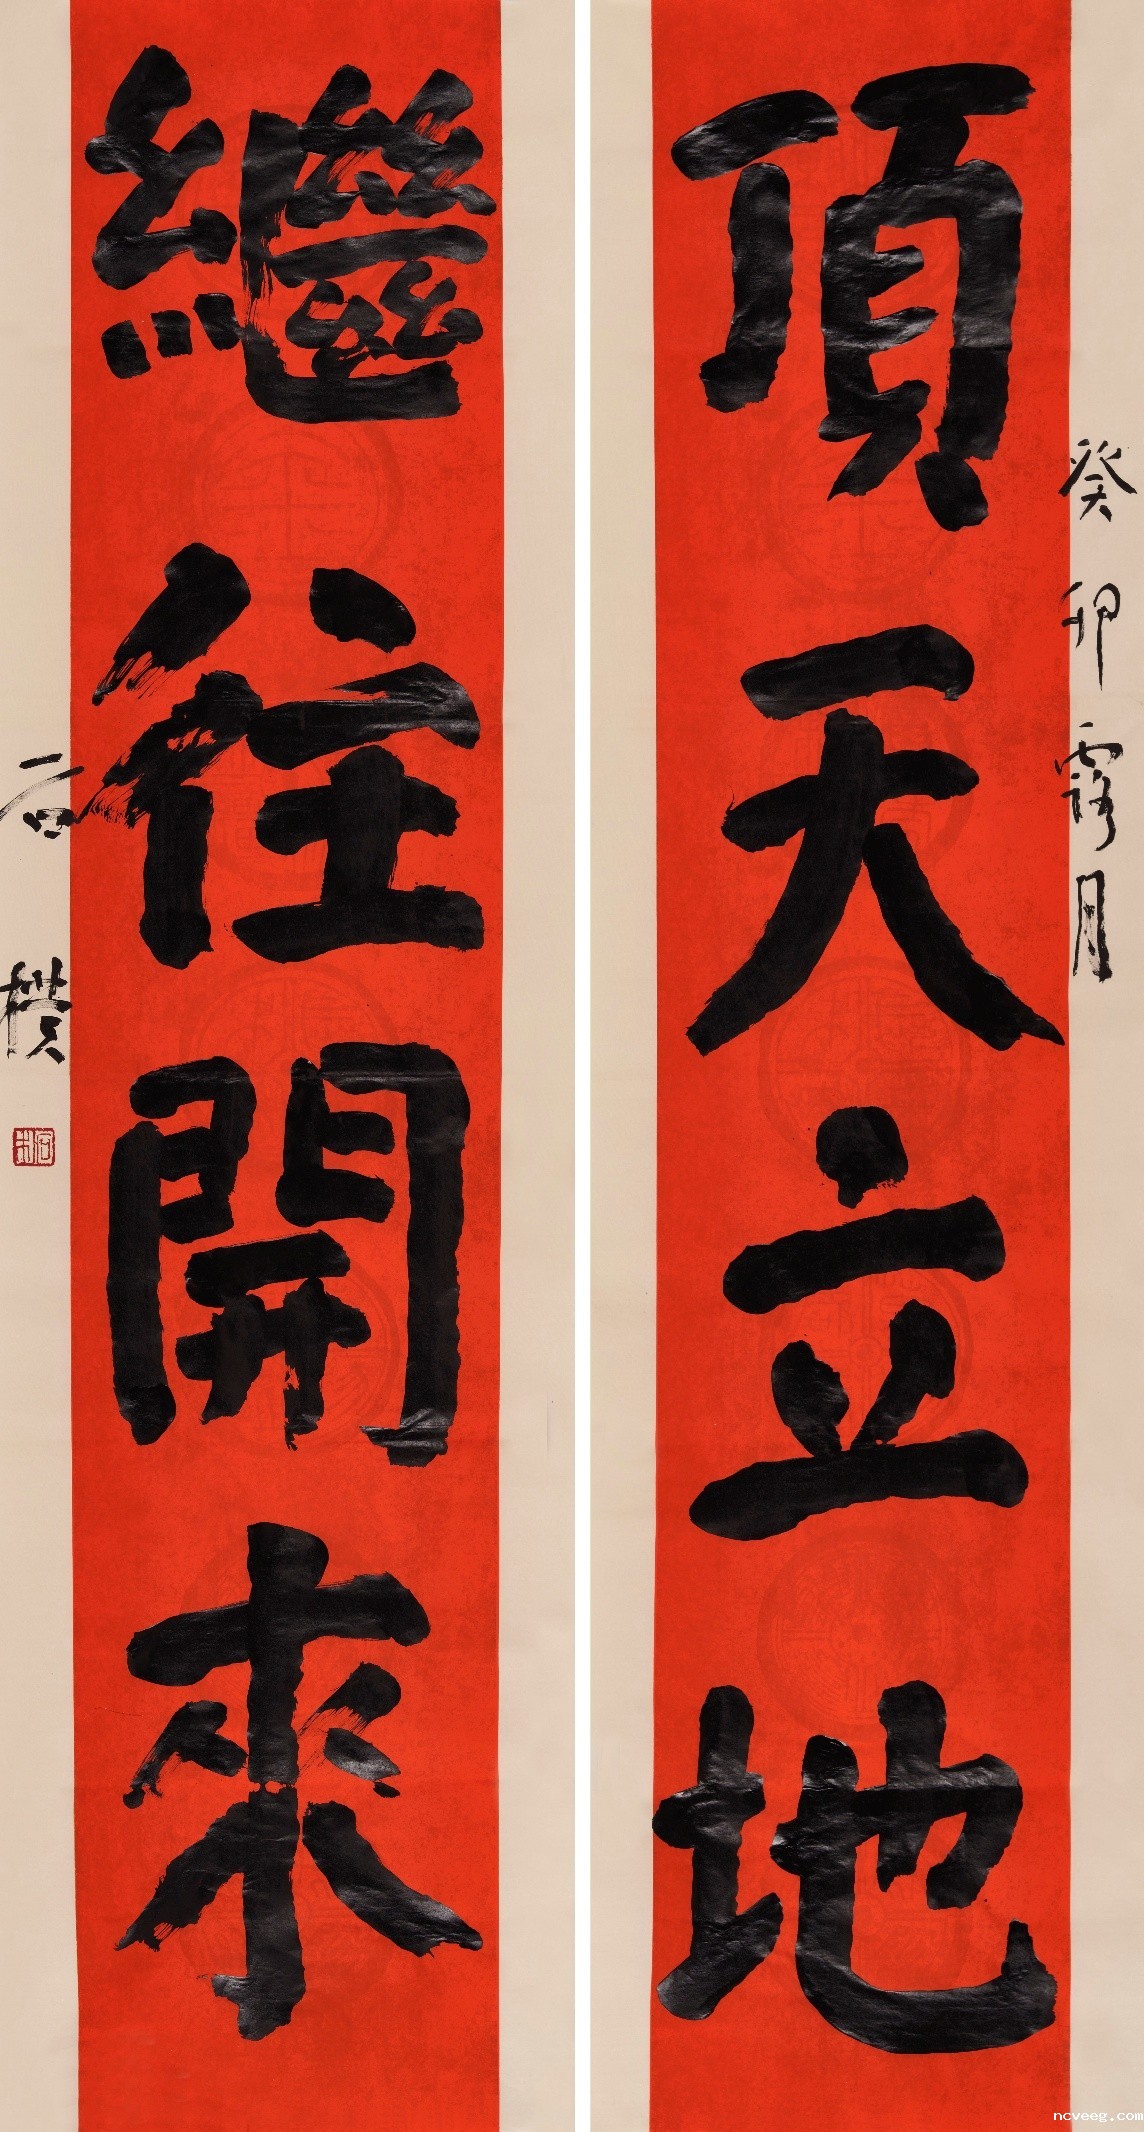 癸卯露月
頂天立地
繼往開來
石樸
ncveeg.com